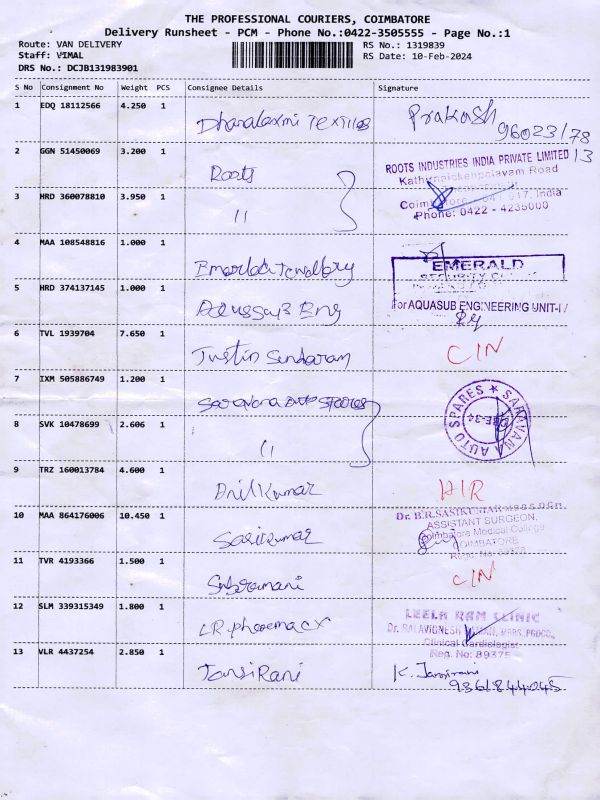 THE PROFESSIONAL COURIERS, COIMBATORE
Delivery Runsheet - PCM - Phone No.:0422-3505555 - Page No.:1
Route: VAN DELIVERY RS No.: 1319839
Staff: VIMAL RS Date: 10-Feb-2024
DRS No.: DCJB131983901
S No Consignment No Weight PCS Consignee Details Signature
1 EDQ 18112566 4.250 1 Dhanalaxmi Textiles Prakash
96023178
13
2 GGN 51450069 3.200 1 Roots ROOTS INDUSTRIES INDIA PRIVATE LIMITED
Kathirnaickenpalayam Road
3 HRD 360078810 3.950 1 11 641 017, India
Phone: 0422 - 4235000
4 MAA 108548816 1.000 1 Emerlad Jewellery EMERALD
5 HRD 374137145 1.000 1 Eng for AQUASUB ENGINEERING UNIT-I
6 TVL 1939704 7.650 1 Justin Sundaram CIN
7 IXM 505886749 1.200 1 Saravana Auto Spares SARAVANA AUTO SPARES
CBE-34
8 SVK 10478699 2.606 1 11
9 TRZ 160013784 4.600 1 Anil Kumar HIR
10 MAA 864176006 10.450 1 Sasikumar Dr. B.R.SASIKUMAR M.B.B.S D.G.H.
ASSISTANT SURGEON,
Coimbatore Medical College
COIMBATORE
11 TVR 4193366 1.500 1 Subramani CIN
12 SLM 339315349 1.800 1 LR pharmacy LEELA RAM CLINIC
Dr. BALAVIGNESH KUMAR, MBBS, PGDCC,
Clinical Cardiologist
Reg. No: 89375
13 VLR 4437254 2.850 1 JansiRani K. Jansirani
9361844045